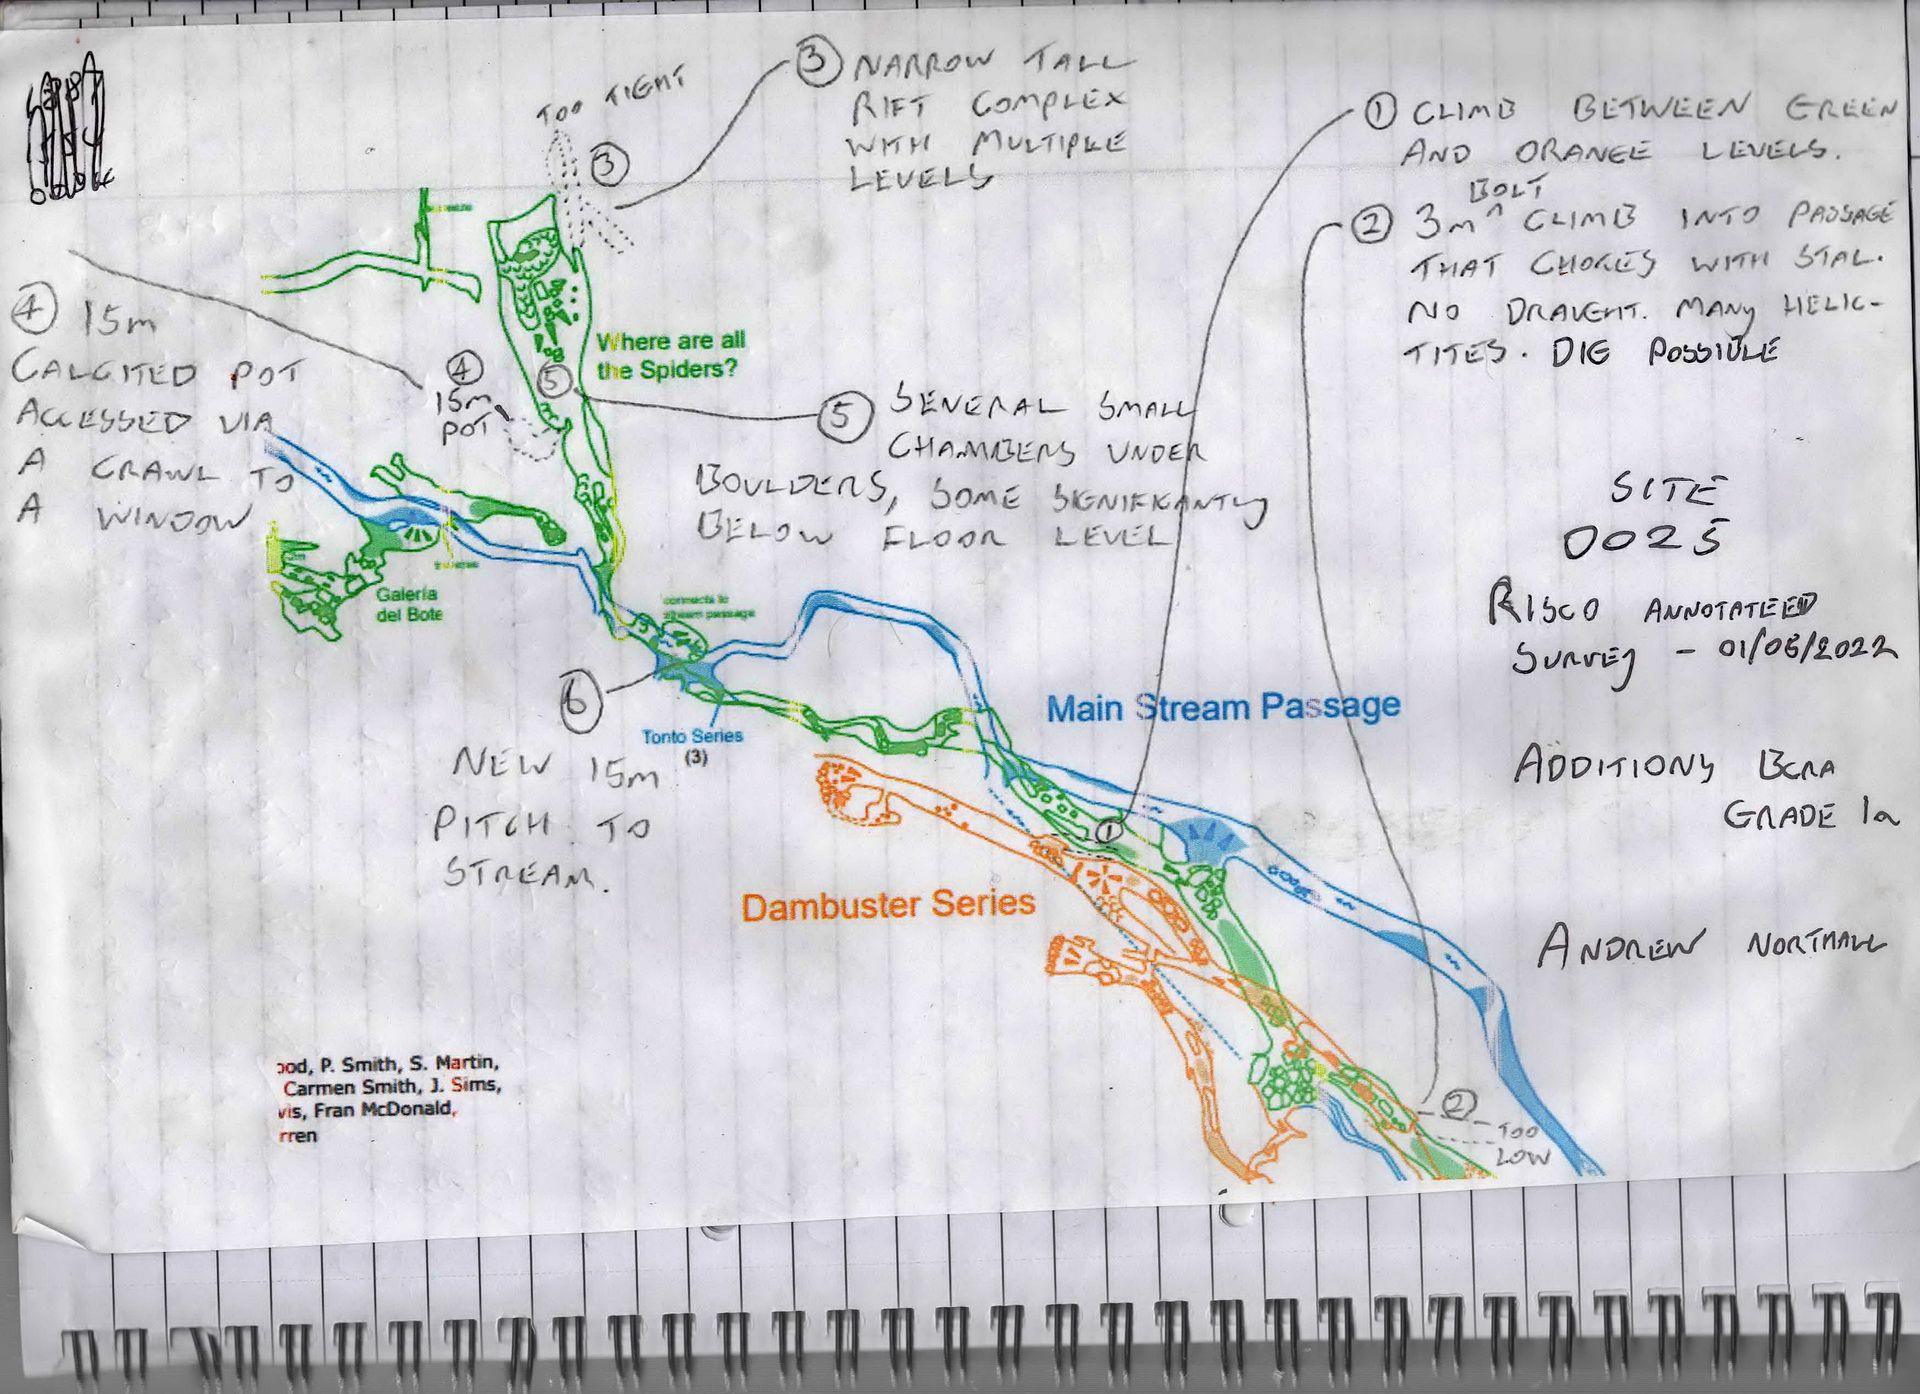 ③ NARROW TALL
RIFT COMPLEX
WITH MULTIPLE
LEVELS
TOO TIGHT
③
① CLIMB BETWEEN GREEN
AND ORANGE LEVELS.
BOLT
② 3m ^ CLIMB INTO PASSAGE
THAT CHOKES WITH STAL.
NO DRAUGHT. MANY HELIC-
TITES. DIG POSSIBLE
④ 15m
CALCITED POT
ACCESSED VIA
A CRAWL TO
A WINDOW
Where are all
the Spiders?
④
15m
POT
⑤
⑤ SEVERAL SMALL
CHAMBERS UNDER
BOULDERS, SOME SIGNIFICANTLY
BELOW FLOOR LEVEL
SITE
0025
RISCO ANNOTATEED
SURVEY - 01/06/2022
Galeria
del Bote
connects to
stream passage
⑥
NEW 15m
PITCH TO
STREAM.
Tonto Series
(3)
Main Stream Passage
ADDITIONS BCRA
GRADE 1a
①
Dambuster Series
ANDREW NORTHALL
ood, P. Smith, S. Martin,
Carmen Smith, J. Sims,
vis, Fran McDonald,
rren
②
TOO
LOW